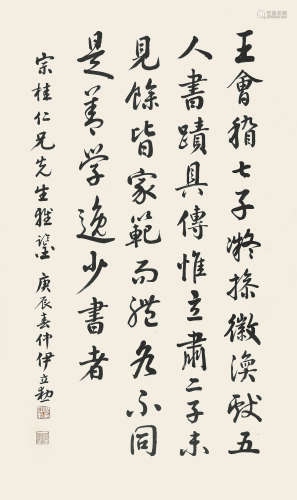 王會稽七子凝操徽渙獻五
人書蹟具傳惟立肅二子未
見餘皆家範而體各不同
是善學逸少書者
宗桂仁兄先生雅鑒 庚辰春仲伊立勳